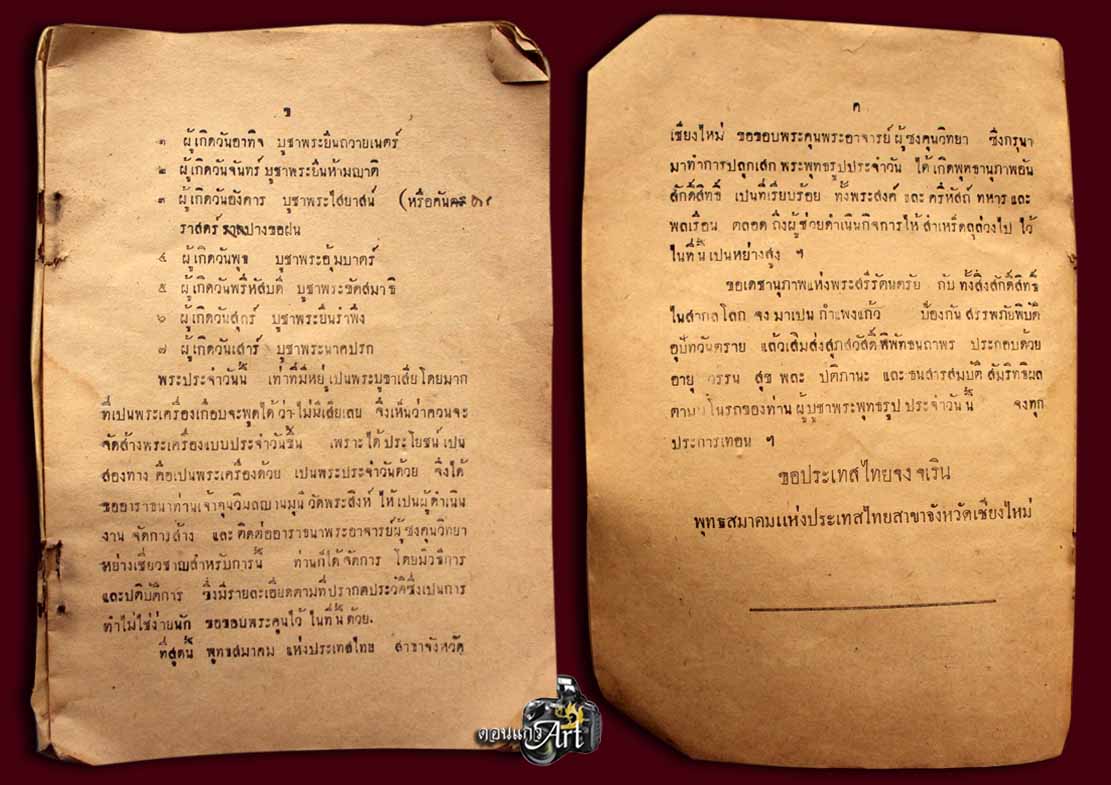 ข
๑ ผู้เกิดวันอาทิจ บูชาพระยืนถวายเนตร์
๒ ผู้เกิดวันจันทร์ บูชาพระยืนห้ามญาติ
๓ ผู้เกิดวันอังคาร บูชาพระไสยาสน์ (หรือคันธ
ราสตร์ ปางขอฝน
๔ ผู้เกิดวันพุธ บูชาพระอุ้มบาตร์
๕ ผู้เกิดวันพรึหัสบดี บูชาพระขัดสมาธิ
๖ ผู้เกิดวันสุกร์ บูชาพระยืนรำพึง
๗ ผู้เกิดวันเสาร์ บูชาพระนาคปรก
พระประจำวันนี้ เท่าที่มีหยู่เปนพระบูชาเสียโดยมาก
ที่เปนพระเครื่องเกือบจะพูดได้ว่าไม่มีเสียเลย จึงเห็นว่าควนจะ
จัดส้างพระเครื่องแบบประจำวันขึ้น เพราะได้ประโยชน์เปน
สองทาง คือเปนพระเครื่องด้วย เปนพระประจำวันด้วย จึงได้
ขออาราธนาท่านเจ้าคุนวิมลญานมุนี วัดพระสิงห์ ไห้เปนผู้ดำเนิน
งาน จัดการส้าง และติดต่ออาราธนาพระอาจารย์ผู้ซงคุนวิทยา
หย่างเชี่ยวชาญสำหรับการนี้ ท่านก็ได้จัดการ โดยมีวิธีการ
และปติบัติการ ซึ่งมีรายละเอียดตามที่ปรากตประวัติซึ่งเปนการ
ทำไม่ไช่ง่ายนัก ขอขอบพระคุนไว้ ไนที่นี้ด้วย.
ที่สุดนี้ พุทธสมาคม แห่งประเทสไทย สาขาจังหวัด
ค
เชียงไหม่ ขอขอบพระคุนพระอาจารย์ผู้ซงคุนวิทยา ซึ่งกรุนา
มาทำการปลุกเสก พระพุทธรูปประจำวัน ได้เกิดพุทธานุภาพอัน
สักดิ์สิทธิ์ เปนที่เรียบร้อย ทั้งพระสงค์ และ ครึหัสถ์ ทหาร และ
พลเรือน ตลอด ถึงผู้ช่วยดำเนินกิจการไห้ สำเหร็ดลุล่วงไป ไว้
ไนที่นี้ เปนหย่างสูง ฯ
ขอเดชานุภาพแห่งพระสรีรัตนตรัย กับ ทั้งสิ่งสักดิ์สิทธิ์
ไนสากลโลก จง มาเปน กำแพงแก้ว ป้องกัน สรรพภัยพิบัติ
อุปัทวันตราย แล้วเสิมส่งสุภสวัสดิ์พิพัทธนถาพร ประกอบด้วย
อายุ วรรน สุข พละ ปติภานะ และ ธนสารสมบัติ สัมริทธิผล
ตามมโนรถของท่าน ผู้บูชาพระพุทธรูป ประจำวันนี้ จงทุก
ประการเทอน ฯ
ขอประเทสไทยจง จเริน
พุทธสมาคมแห่งประเทสไทยสาขาจังหวัดเชียงไหม่
ดอนแก้ว Art